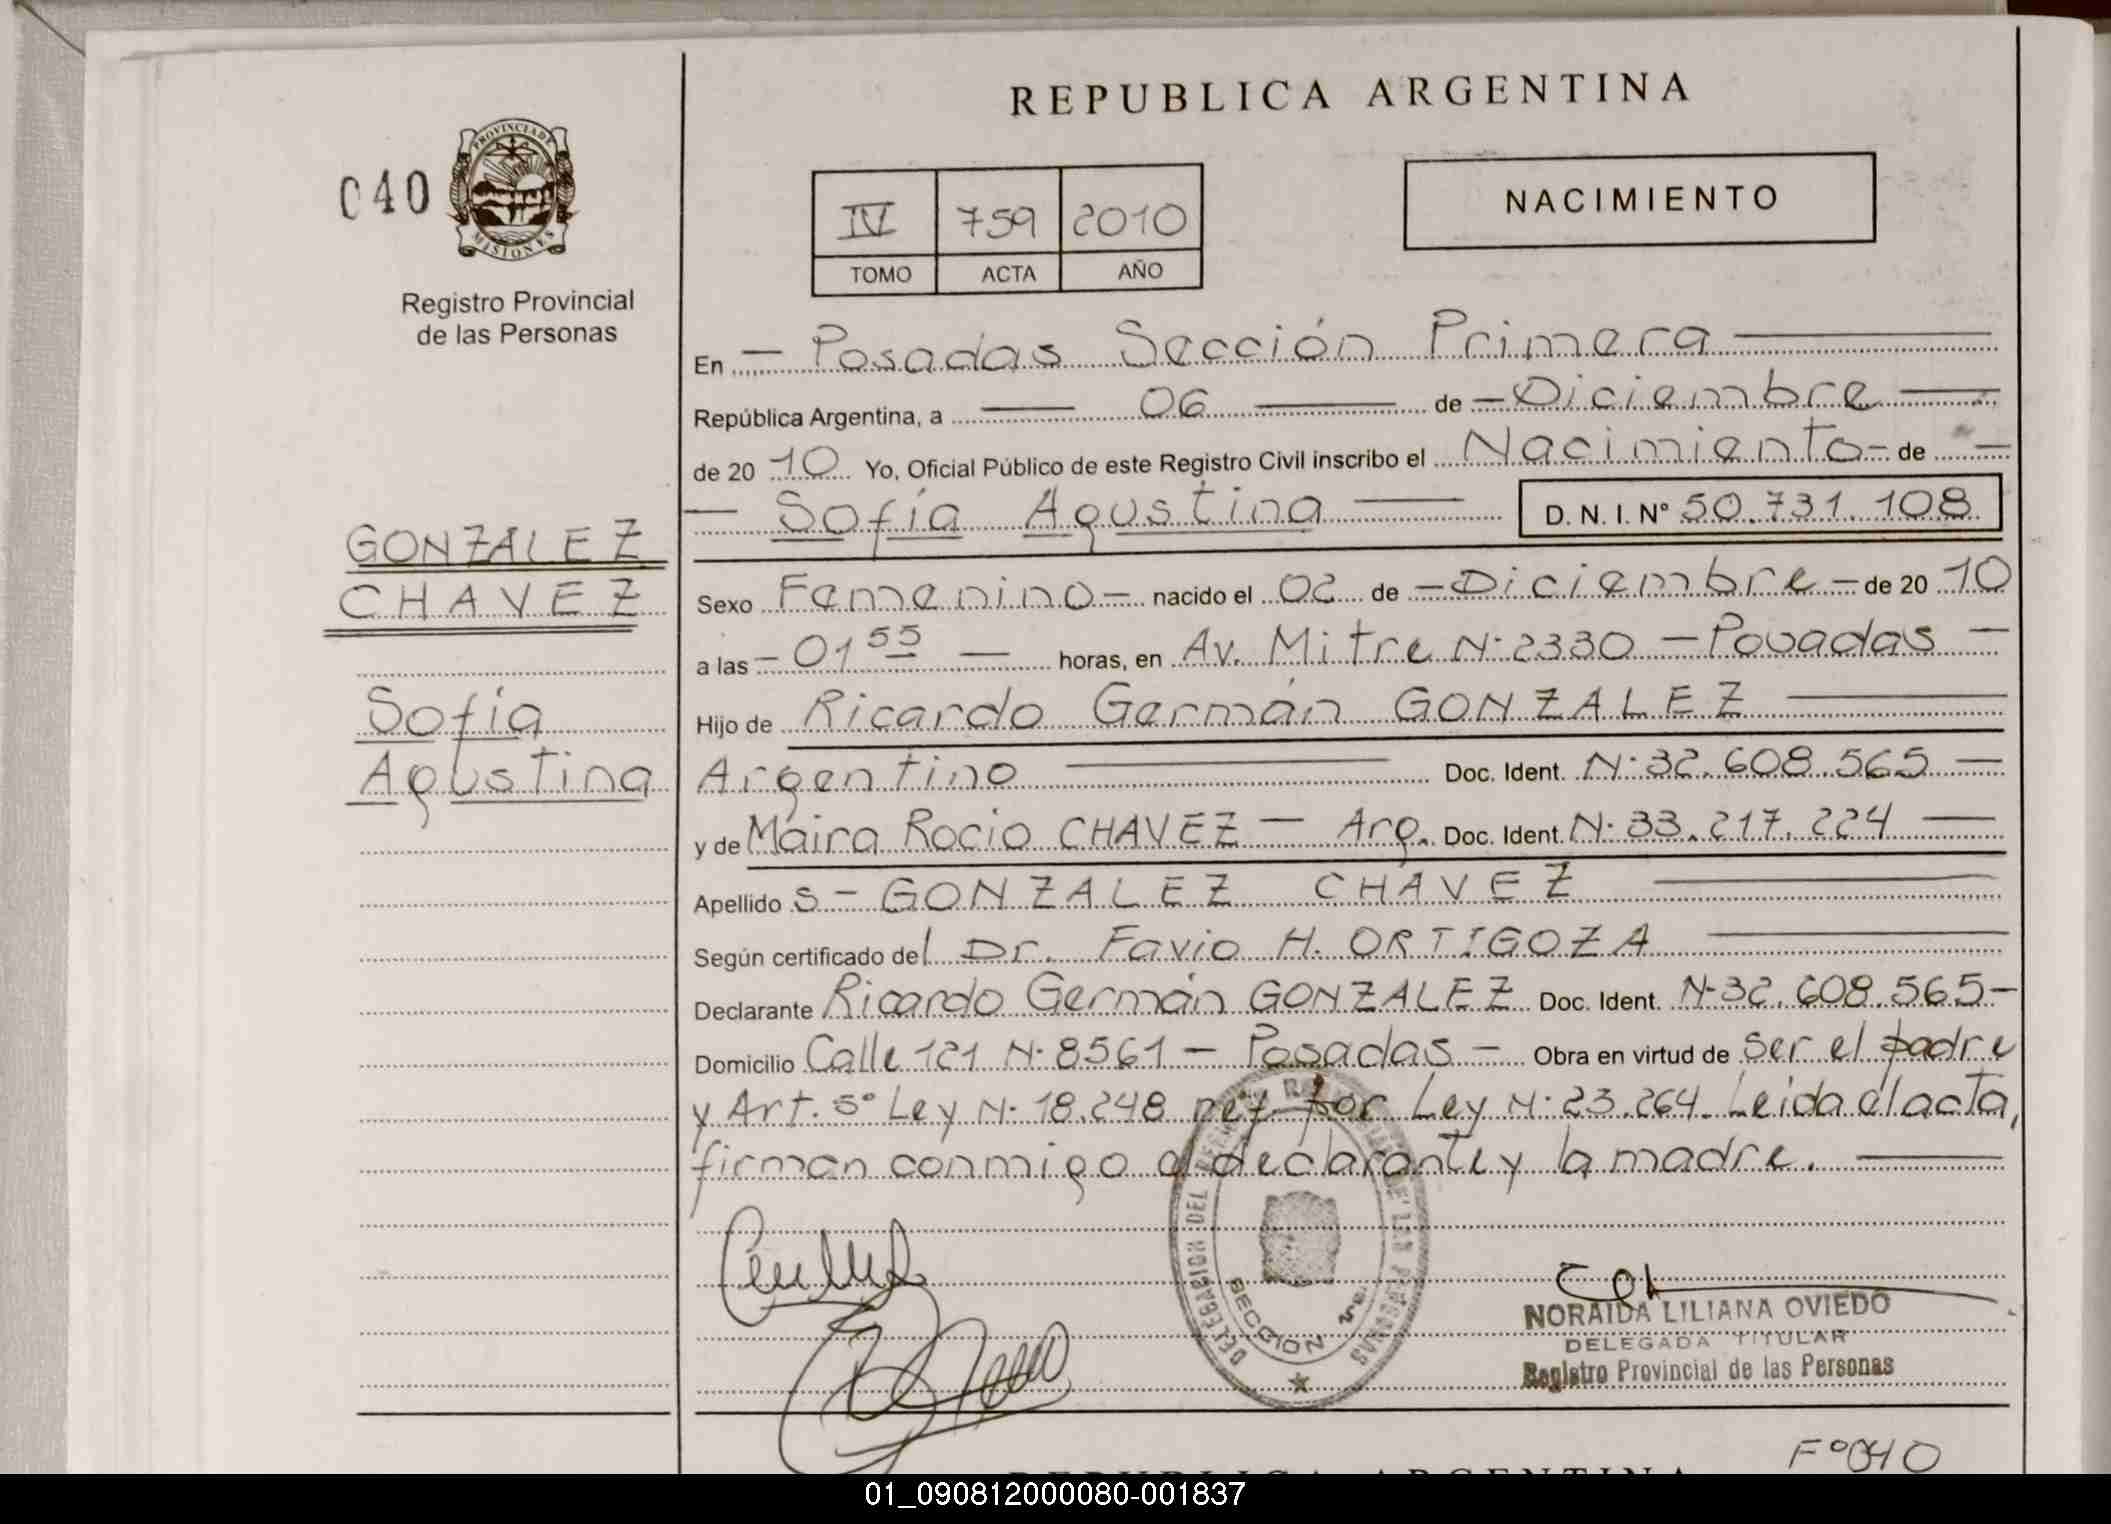 REPUBLICA ARGENTINA
040
PROVINCIA DE
MISIONES
Registro Provincial
de las Personas
IV 759 2010
TOMO ACTA AÑO
NACIMIENTO
En - Posadas Sección Primera
República Argentina, a 06 de - Diciembre
de 20 10 Yo, Oficial Público de este Registro Civil inscribo el Nacimiento - de
Sofía Agustina D. N. I. Nº 50.731.108
GONZALEZ
CHAVEZ
Sofía
Agustina
Sexo Femenino - nacido el 02 de - Diciembre - de 20 10
a las - 01 55 horas, en Av. Mitre Nº 2330 - Posadas
Hijo de Ricardo Germán GONZALEZ
Argentino Doc. Ident. Nº 32.608.565
y de Maira Rocio CHAVEZ - Arg. Doc. Ident. Nº 33.217.224
Apellido s - GONZALEZ CHAVEZ
Según certificado del Dr. Favio H. ORTIGOZA
Declarante Ricardo Germán GONZALEZ Doc. Ident. Nº 32.608.565 -
Domicilio Calle 121 Nº 8561 - Posadas - Obra en virtud de ser el padre
y Art. 5º Ley Nº 18.248 por Ley Nº 23.264. Leida el acta,
firman conmigo el declarante y la madre.
DELEGACION DEL DE LAS PERSONAS
SECCION
NORAIDA LILIANA OVIEDO
DELEGADA TITULAR
Registro Provincial de las Personas
Fº 040
REPUBLICA ARGENTINA
01_090812000080-001837